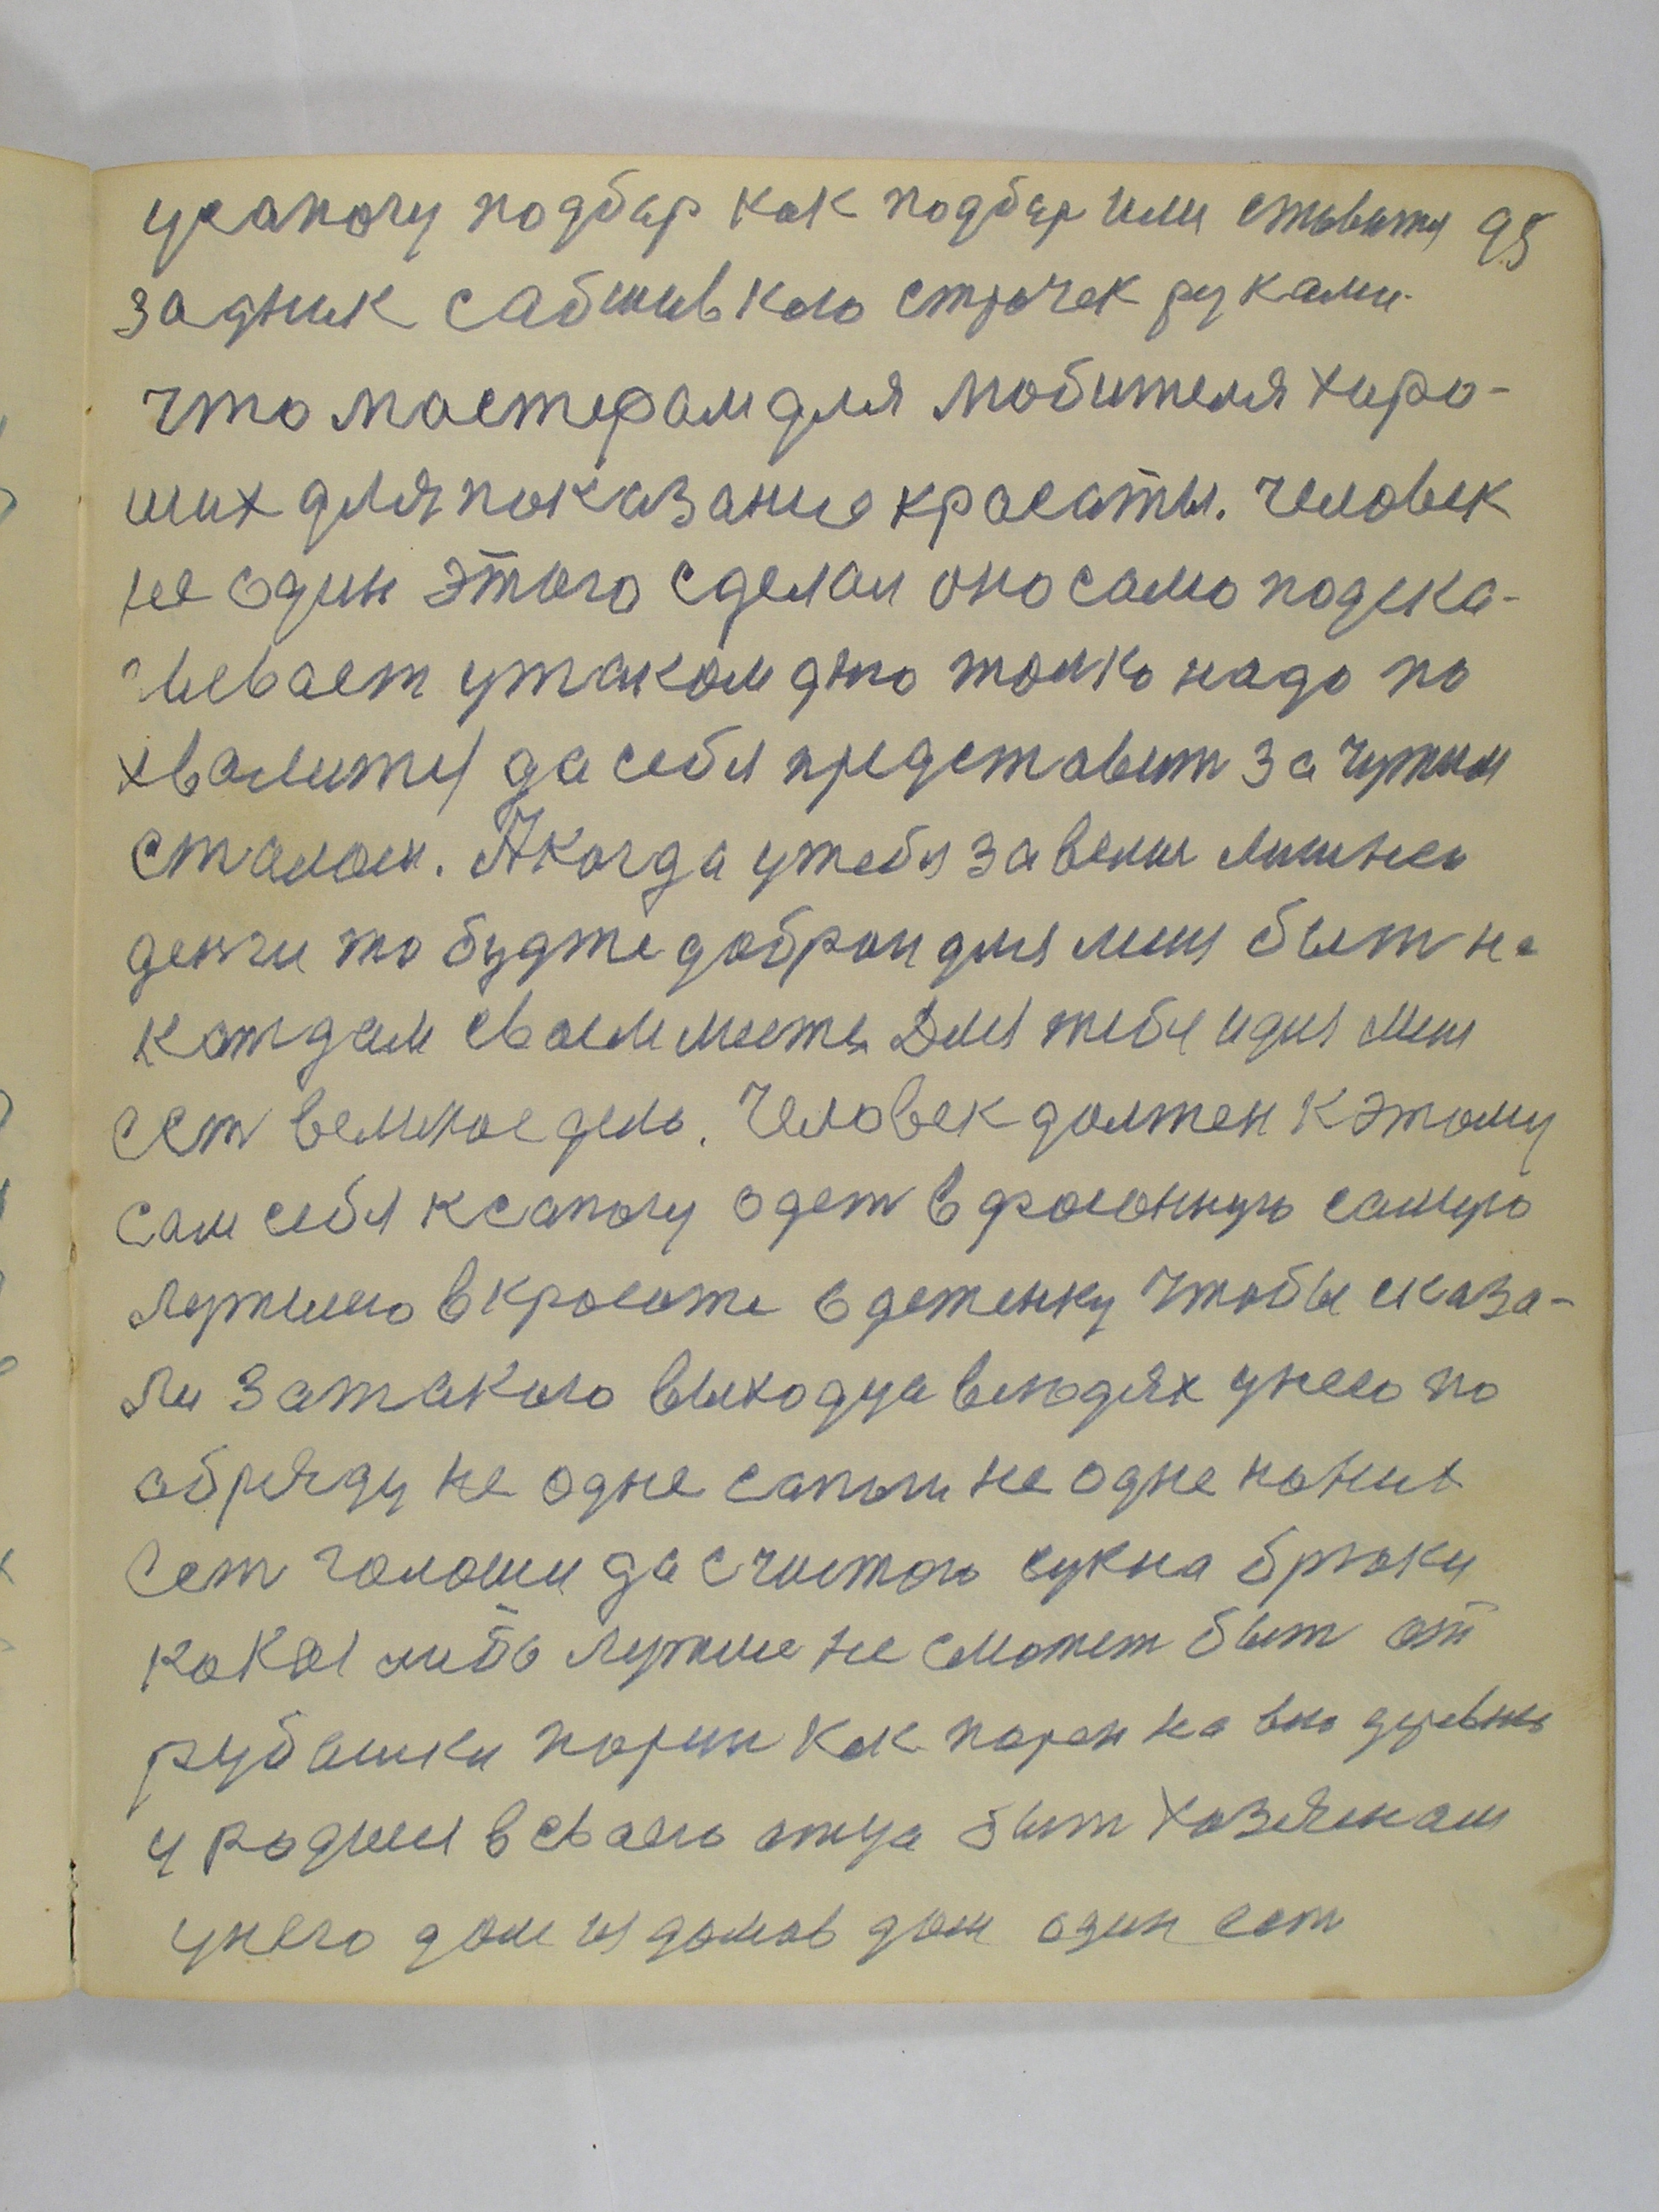 усапогу подбер как подбер или ставитя 95
задник сабшивкою строчек руками
что мастерам для любителя харо-
ших для показание красаты. Человек
не один этого сделал оно само подска-
зывает утаком дню толко надо по
хвалится да себя представит за чужим
сталом. А когда утебя завелис лишнеи
денги то будте доброи для меня быт на
каждам сваем месте Для тебя идля меня
ест великое дело. Человек должен кэтому
сам себя ксапогу одет в фасонную самую
лутшею в красате одеженку чтобы сказа-
ли затакого выходца влюдях унего по
абряду не одне сапоги не одне наних
ест галоши да счистого сукна брюки
какая либо лутше не сможет быт от
рубашки парин как парен на всю деревню
у родных всваего отца быт хозяинам
унего дом из домов дом один ест